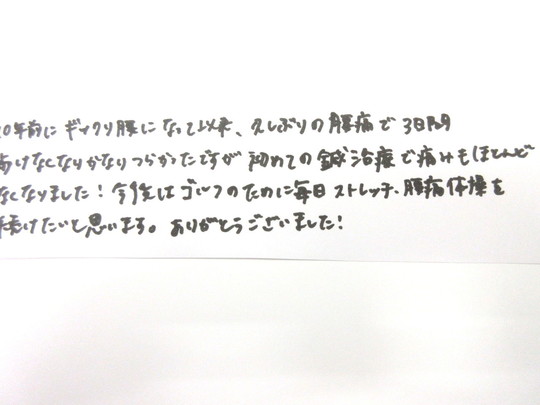 0年前にギックリ腰になって以来、久しぶりの腰痛で3日間
動けなくなりかなりつらかったですが初めての鍼治療で痛みもほとんど
なくなりました!今後はゴルフのために毎日ストレッチ、腰痛体操を
続けたいと思います。ありがとうございました!